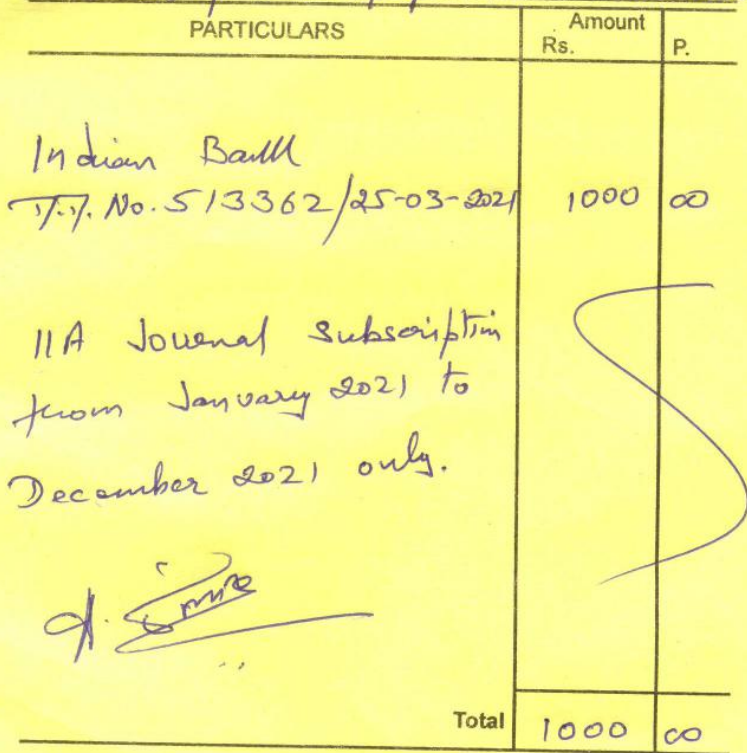 PARTICULARS Amount
Rs. P.
Indian Bank
D.D. No. 513362/25-03-2021 1000 00
IIA Journal Subscription
from January 2021 to
December 2021 only.
Total 1000 00